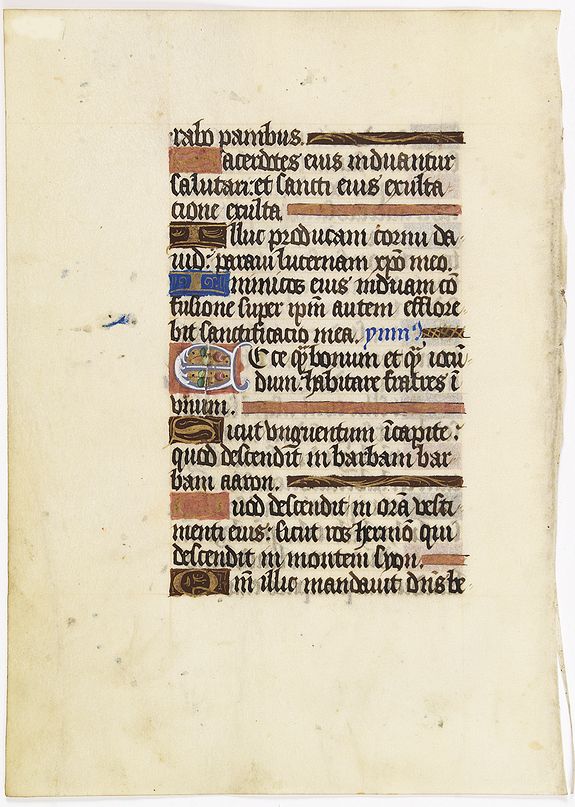 rabo panibus.
Sacerdotes eius induantur
salutari: et sancti eius exulta
cione exulta.
Illuc producam cornu da
uid: paraui lucernam xp̄o meo.
Inimicos eius induam cō
fusione super ip̄m autem efflore
bit sanctificacio mea. ymn9
Ecce q̄ bonum et q̄ iocū
dum: habitare fratres ī
vnum.
Sicut vnguentum ī capite:
quod descendit in barbam bar
bam aaron.
Quod descendit in orā vesti
menti eius: sicut ros hermō qui
descendit in montem syon.
Qm̄ illic mandauit dn̄s be